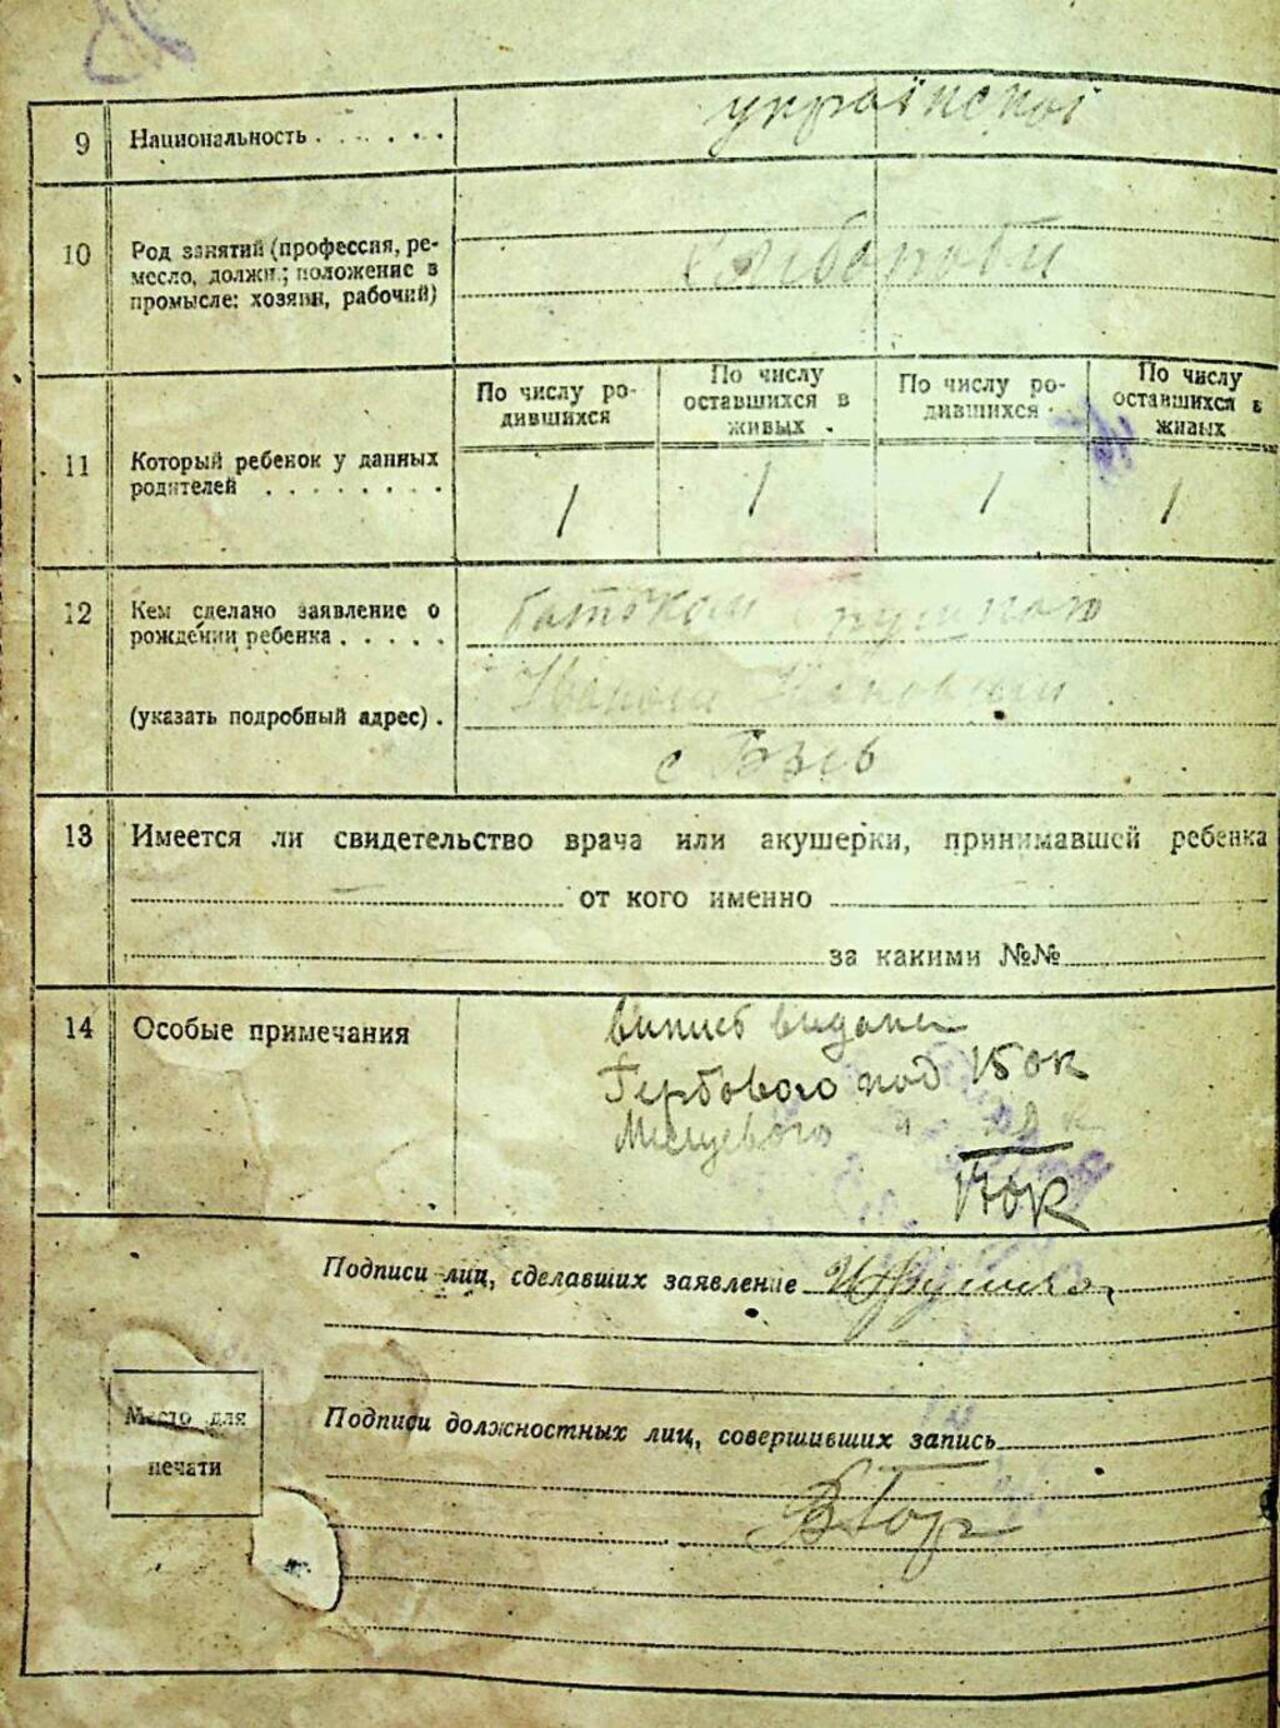 9 Национальность . . . . . . української
10 Род занятий (профессия, ре-
месло, должн.; положение в
промысле: хозяин, рабочий)
Хлібороби
По числу ро-
дившихся
По числу
оставшихся в
живых
По числу ро-
дившихся
По числу
оставшихся в
живых
11 Который ребенок у данных
родителей . . . . . . . .
1 1 1 1
12 Кем сделано заявление о
рождении ребенка . . . . .
батьком
(указать подробный адрес) .
Іваном
с
13 Имеется ли свидетельство врача или акушерки, принимавшей ребенка
от кого именно
за какими №№
14 Особые примечания
Випись видана
Гербового под 15 ок
Місцевого
17 ок
Подписи лиц, сделавших заявление
Подписи должностных лиц, совершивших запись
Место для
печати